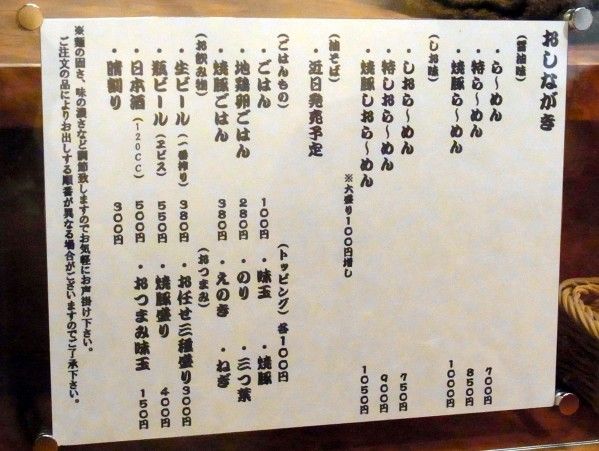 おしながき
(醤油味)
・ら〜めん 700円
・特ら〜めん 850円
・焼豚ら〜めん 1000円
(しお味)
・しおら〜めん 750円
・特しおら〜めん 900円
・焼豚しおら〜めん 1050円
※大盛り100円増し
(油そば)
・近日発売予定
(ごはんもの)
・ごはん 100円
・地鶏卵ごはん 280円
・焼豚ごはん 380円
(トッピング) 各100円
・味玉 ・焼豚
・のり ・三つ葉
・えのき ・ねぎ
(お飲み物)
・生ビール (一番搾り) 380円
・瓶ビール (ヱビス) 550円
・日本酒 (120CC) 500円
・晴割り 300円
(おつまみ)
・お任せ三種盛り 300円
・焼豚盛り 400円
・おつまみ味玉 150円
※麺の固さ、味の濃さなど調節致しますのでお気軽にお声掛け下さい。
ご注文の品によりお出しする順番が異なる場合がございますのでご了承下さい。